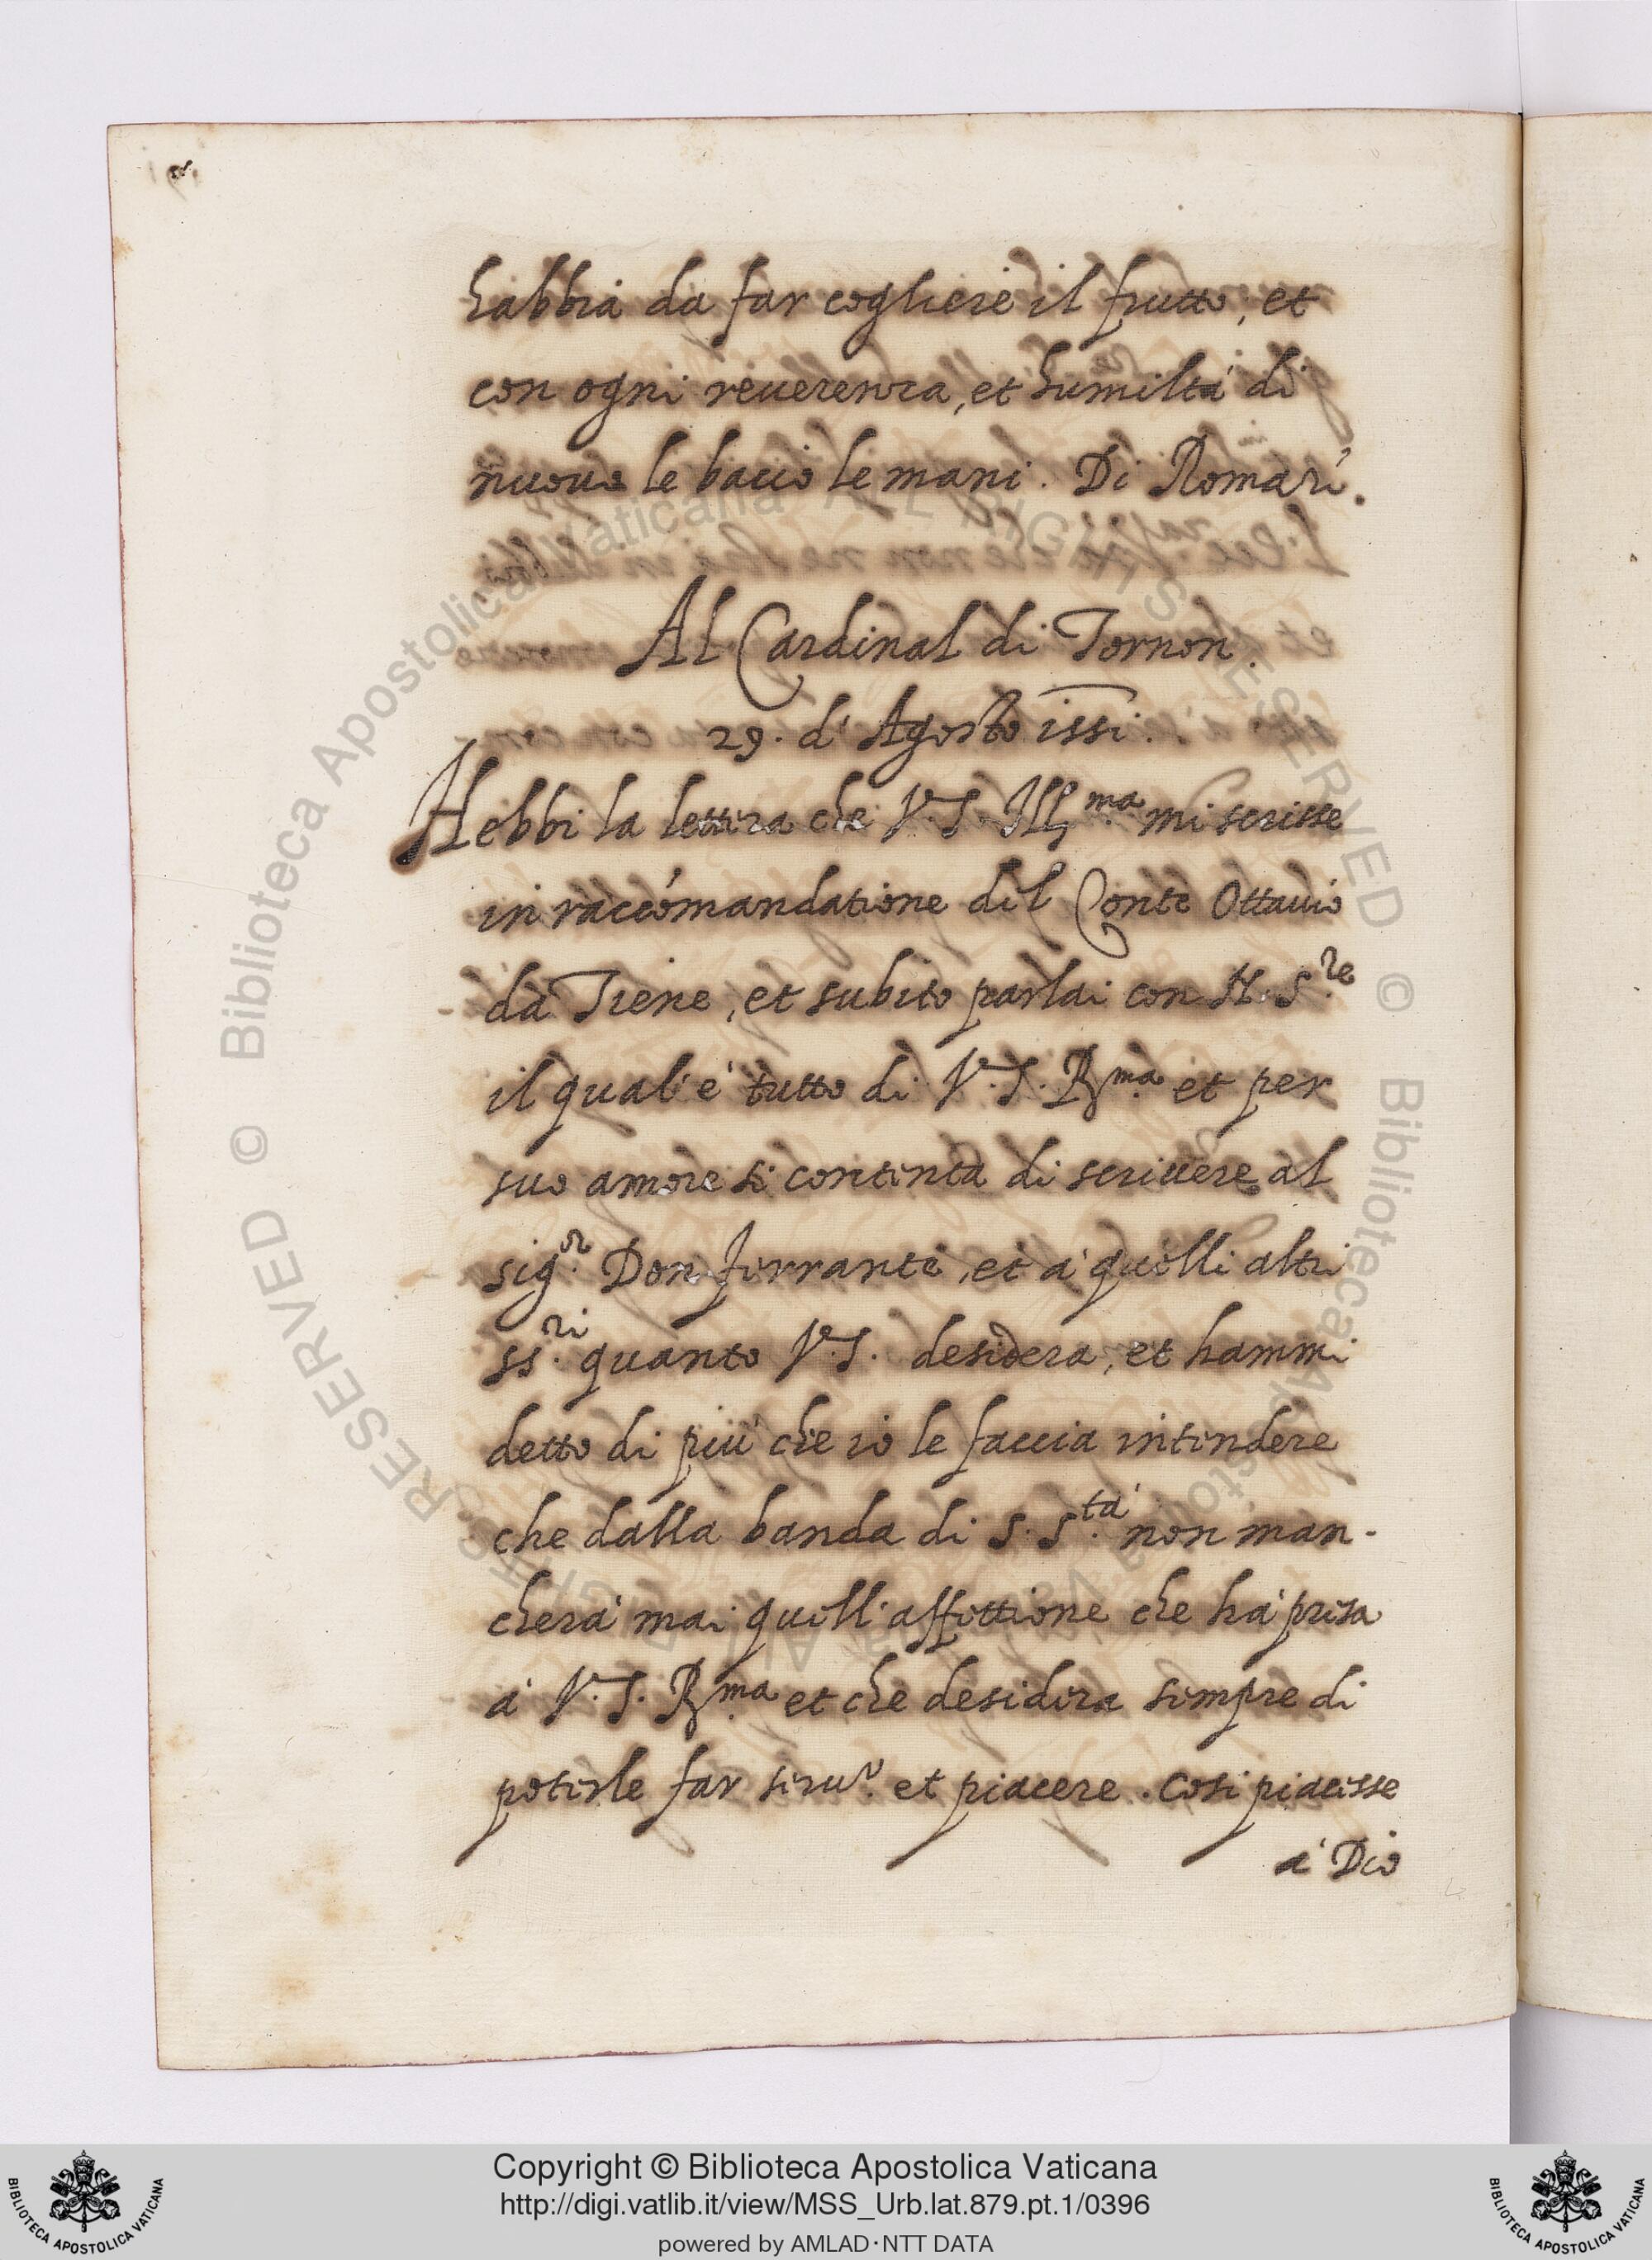 habbia da far cogliere il frutto, et
con ogni reuerenza, et humiltà di
nuouo le bacio le mani. Di Roma
Al Cardinal di Tornon.
29. d'Agosto 155i.
Hebbi la lettera che V. S. Ill.ma mi scrisse
in raccomandatione del Conte Ottauio
da Tiene, et subito parlai con N. S.re
il qual'è tutto di V. S. R.ma et per
suo amore si contenta di scriuere al
sig.r Don ferrante, et à quelli altri
ss.ri quanto V. S. desidera, et hammi
detto di più che io le faccia intendere
che dalla banda di S. S.tà non man-
cherà mai quell'affettione che hà presa
à V. S. R.ma et che desidera sempre di
poterle far seru.o et piacere. Cosi piacesse
à Dio
© Biblioteca Apostolica Vaticana ALL RIGHTS RESERVED
Copyright © Biblioteca Apostolica Vaticana
http://digi.vatlib.it/view/MSS_Urb.lat.879.pt.1/0396
powered by AMLAD·NTT DATA
BIBLIOTECA APOSTOLICA VATICANA
BIBLIOTECA APOSTOLICA VATICANA